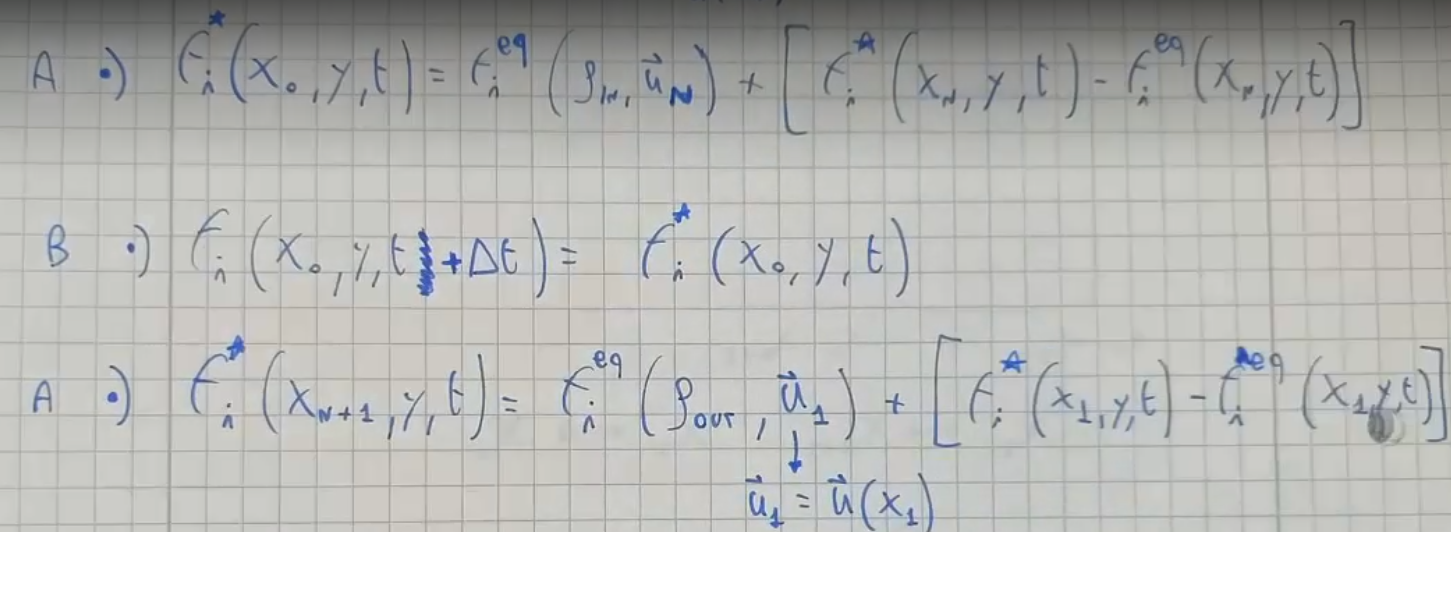 A •) fᵢ*(x₀, y, t) = fᵢ^eq (ρ_IN, u⃗_N) + [fᵢ*(x_N, y, t) - fᵢ^eq (x_N, y, t)]
B •) fᵢ(x₀, y, t + Δt) = fᵢ*(x₀, y, t)
A •) fᵢ*(x_N+1, y, t) = fᵢ^eq (ρ_OUT, u⃗₁) + [fᵢ*(x₁, y, t) - fᵢ^eq (x₁, y, t)]
↓
u⃗₁ = u⃗(x₁)